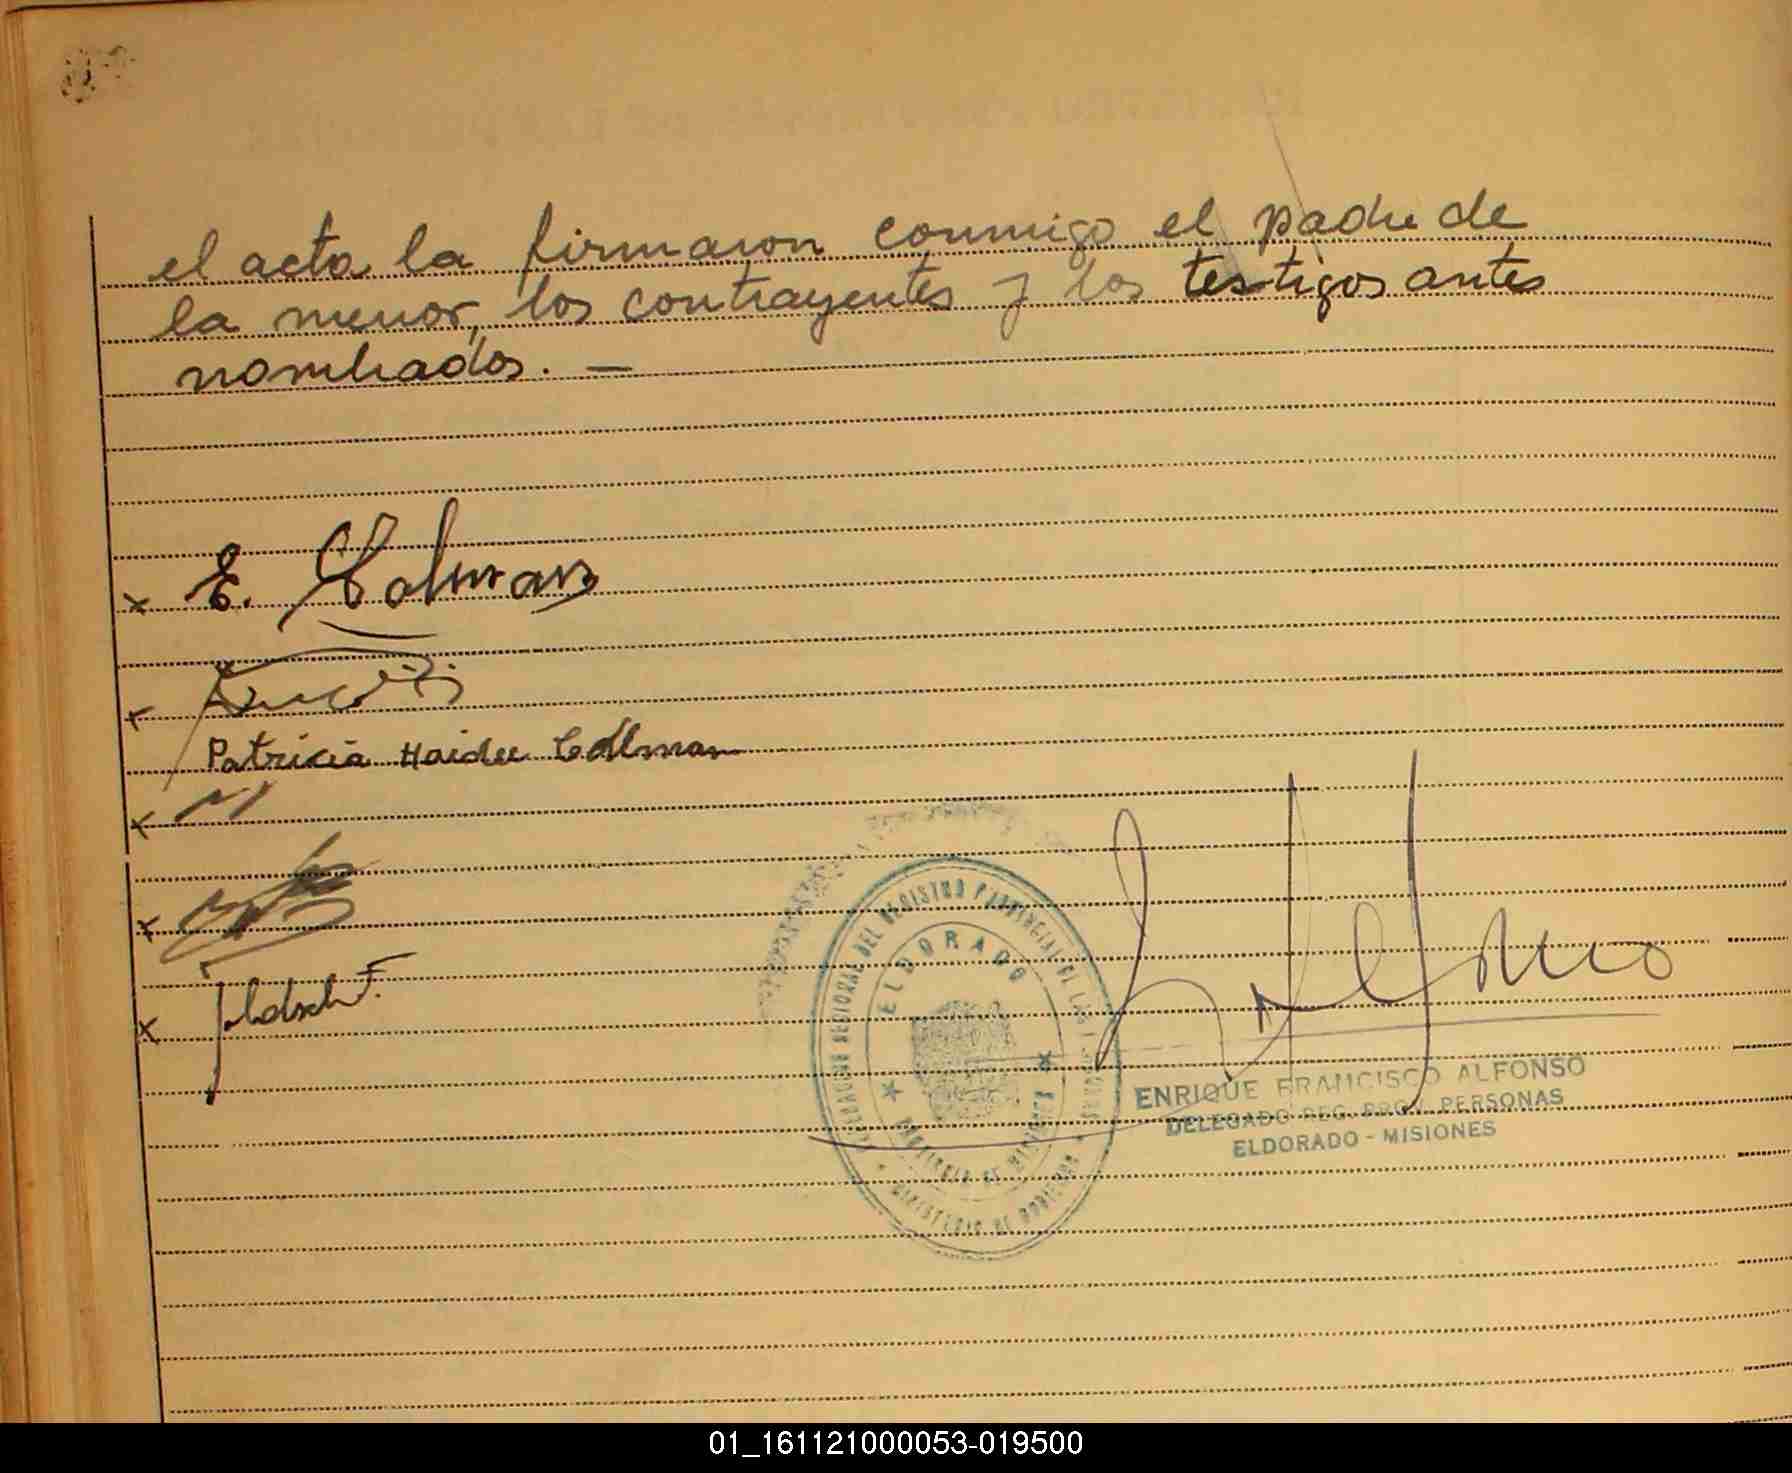 el acta la firmaron conmigo el padre de
la menor, los contrayentes y los testigos antes
nombrados. —
x E. Colman
x
Patricia Haidee Collman
x
x
x
DELEGACION REGIONAL DEL REGISTRO PROVINCIAL DE LAS PERSONAS
ELDORADO
PROVINCIA DE MISIONES
MINISTERIO DE GOBIERNO
ENRIQUE FRANCISCO ALFONSO
DELEGADO REG. PROV. PERSONAS
ELDORADO - MISIONES
01_161121000053-019500